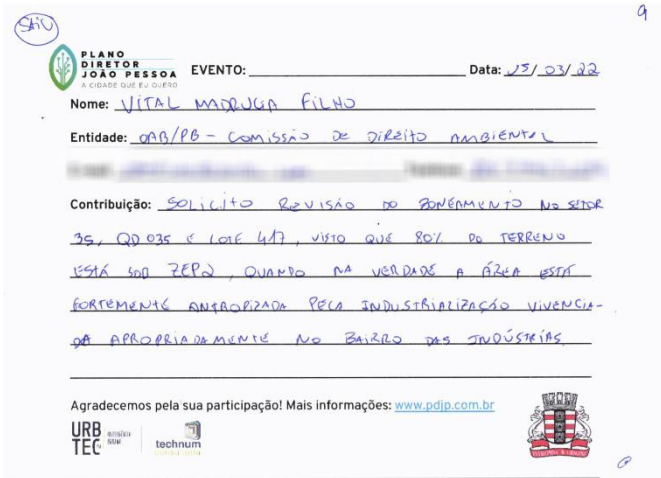 SAIU
9
PLANO
DIRETOR
JOÃO PESSOA
A CIDADE QUE EU QUERO
EVENTO: Data: 15/03/22
Nome: VITAL MADRUGA FILHO
Entidade: OAB/PB - COMISSÃO DE DIREITO AMBIENTAL
Contribuição: SOLICITO REVISÃO DO ZONEAMENTO NO SETOR
35, QD 035 E LOTE 417, VISTO QUE 80% DO TERRENO
ESTÁ SOB ZEP2, QUANDO NA VERDADE A ÁREA ESTÁ
FORTEMENTE ANTROPIZADA PELA INDUSTRIALIZAÇÃO VIVENCIA-
DA APROPRIADAMENTE NO BAIRRO DAS INDÚSTRIAS
Agradecemos pela sua participação! Mais informações: www.pdjp.com.br
URB
TEC
technum